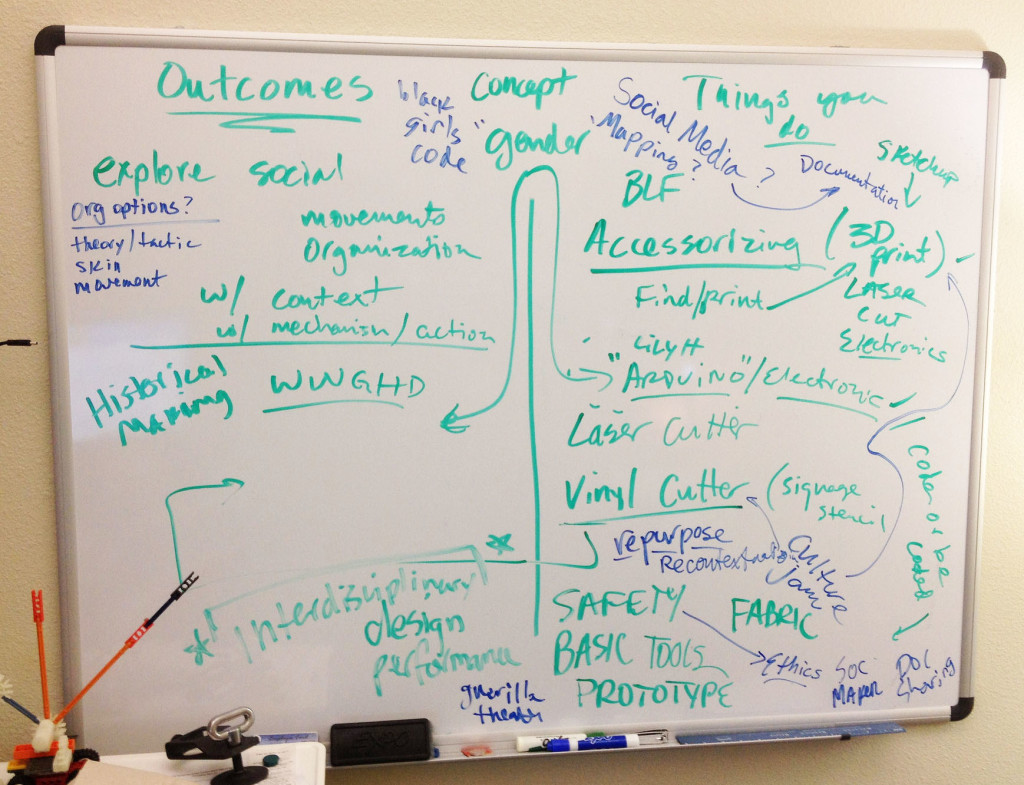 Outcomes
explore social
org options?
theory/tactic
skin
movement
movements
organization
w/ context
w/ mechanism/action
Historical
Making
WWGHD
* Interdisciplinary *
design
performance
guerilla
theatre
black
girls
code
concept
"gender"
Things you
do
Social Media
Mapping? ?
Documentation
Sketchup
BLF
Accessorizing (3D
print) ✓
Find/print
LASER
CUT
Electronics
LILYH
"ARDUINO"/Electronic ✓
Laser Cutter
Vinyl Cutter (signage
stencil
repurpose
culture
jam
coded or be
coded
SAFETY
FABRIC
BASIC TOOLS
PROTOTYPE
Ethics
SOC
MAKER
DOC
Sharing
EXPO